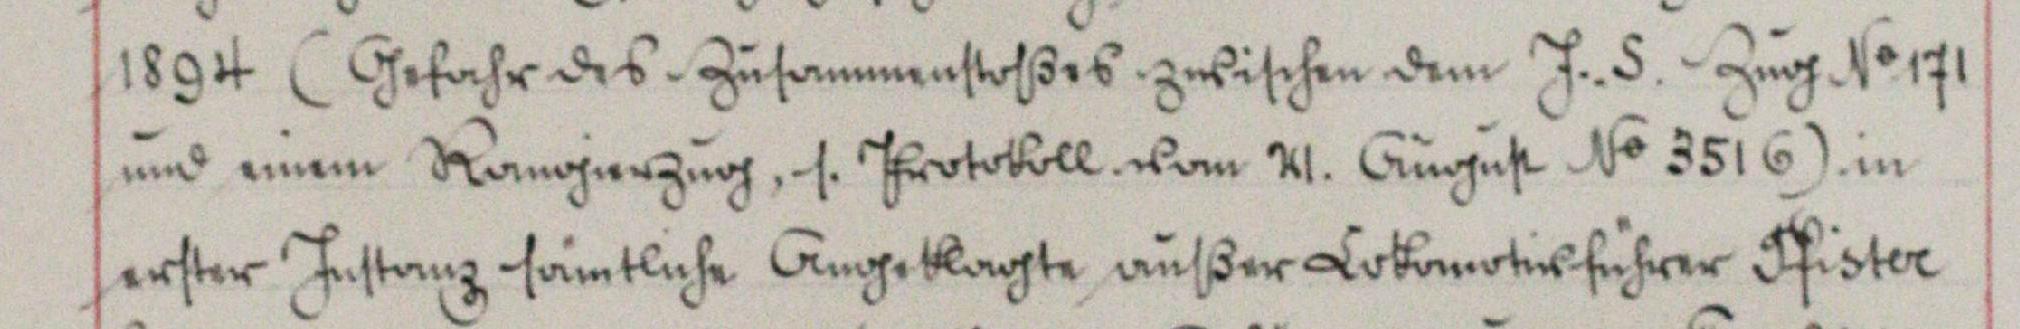 1894 (Gefahr des Zusammenstoßes zwischen dem J. S. Zug No 171
und einem Rangierzug, s. Protokoll vom 21. August No 3516) in
erster Instanz sämtliche Angeklagte außer Lokomotivführer Pfister